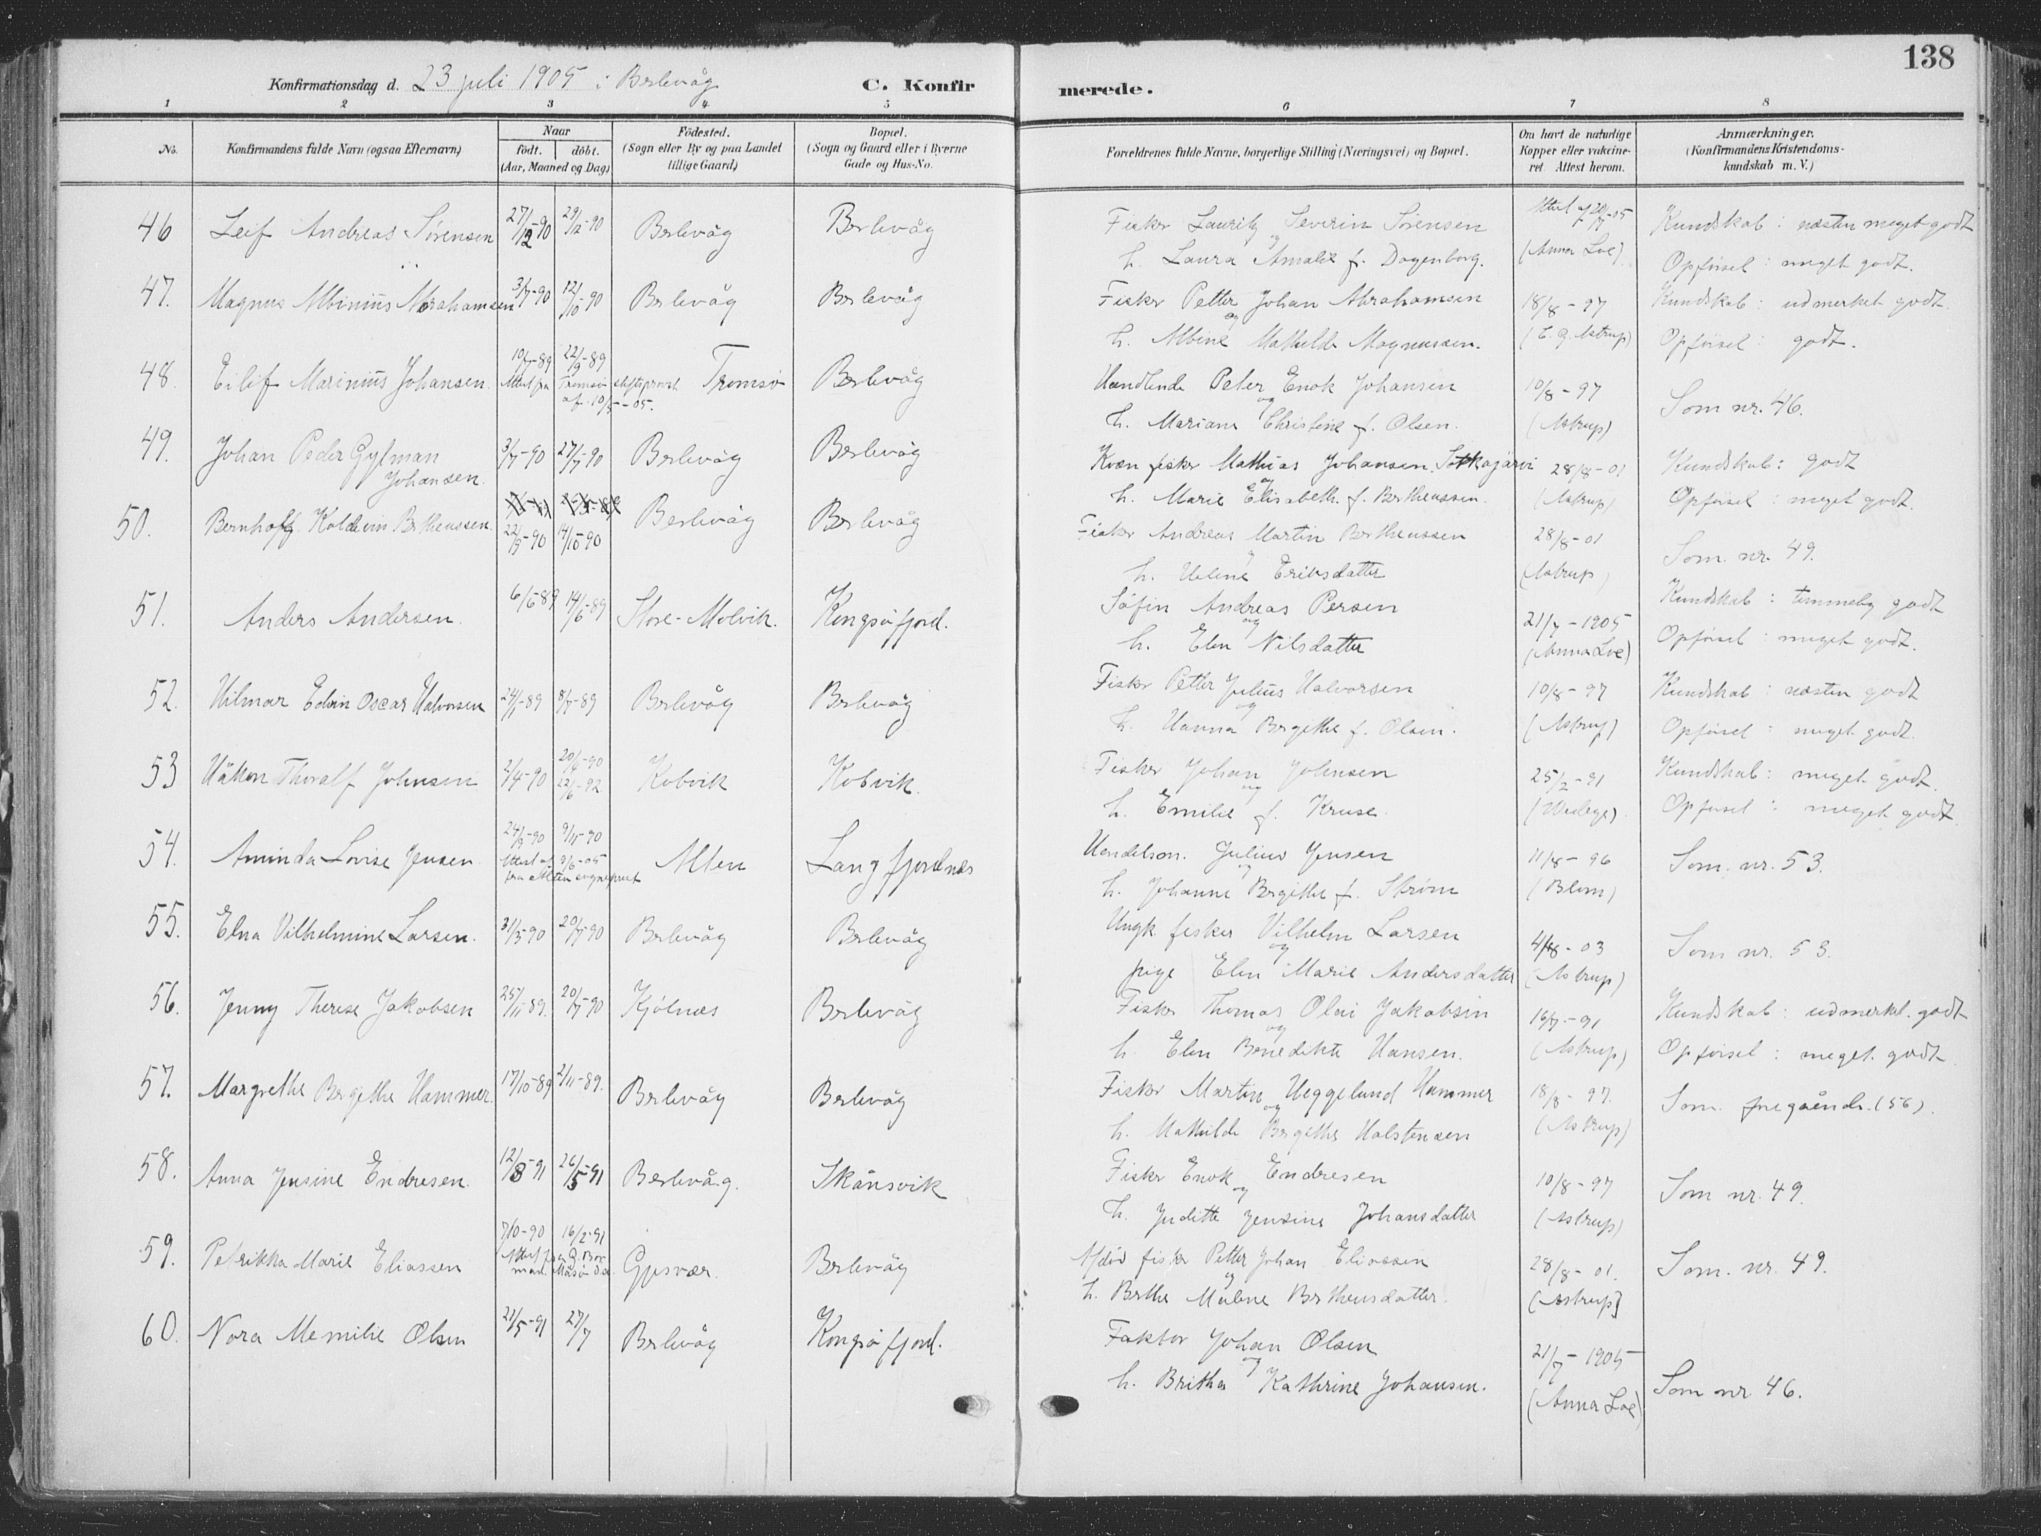 138
Konfirmationsdag d. 23 juli 1905 i Berlevåg
C. Konfirmerede.
1 2 3 4 5 6 7 8
No.
Konfirmandens fulde Navn (ogsaa Efternavn)
Naar
födt. döbt.
(Aar, Maaned og Dag)
Födested.
(Sogn eller By og paa Landet
tillige Gaard)
Bopæl.
(Sogn og Gaard eller i Byerne
Gade og Hus-No.
Forældrenes fulde Navne, borgerlige Stilling (Næringsvei) og Bopæl.
Om havt de naturlige
Kopper eller vakcine-
ret Attest herom.
Anmærkninger.
(Konfirmandens Kristendoms-
kundskab m. V.)
46 Leif Andreas Sörensen 27/12-90 29/12-90 Berlevåg Berlevåg
Fisker Lauritz Severin Sörensen
og
h. Laura Amalie f. Dagenborg.
(Anna Loe)
Kundskab: næsten meget godt
Opförsel: meget godt.
47. Magnus Albinius Abrahamsen 3/7-90 12/10-90 Berlevåg Berlevåg
Fisker Petter Johan Abrahamsen
og
h. Albine Mathilde Magnussen.
18/8-97
(E. g. Astrup)
Kundskab: udmerket godt.
Opförsel: godt.
48. Eilif Marinius Johansen 22/9-89 Tromsö Berlevåg
Attest fra Tromsö stiftsprovst
af 10/5-05.
Handlende Peter Enok Johansen
og
h. Mariane Christine f. Olsen.
10/8-97
(Astrup)
Som nr. 46.
49. Johan Peder Gylman
Johansen.
3/7-90 27/7-90 Berlevåg Berlevåg
Kvæn fisker Mathias Johansen Sotkajärvi
og
h. Marie Elisabeth f. Bertheussen.
28/8-01
(Astrup)
Kundskab: godt
Opförsel: meget godt.
50. Bernhoff Koldevin Bertheussen. 22/9-90 14/10-90 Berlevåg Berlevåg
Fisker Andreas Martin Bertheussen
og
h. Helene Eriksdatter
28/8-01
(Astrup)
Som nr. 49.
51. Anders Andersen. 6/5-89 14/6-89 Store-Molvik. Kongsöfjord.
Söfin Andreas Persen
og
h. Elen Nilsdatter
21/7-1905
(Anna Loe)
Kundskab: temmelig godt
Opförsel: meget godt.
52. Hilmar Edvin Oscar Halvorsen 8/7-89 Berlevåg Berlevåg
Fisker Petter Julius Halvorsen
og
h. Hanna Bergethe f. Olsen.
10/8-97
(Astrup)
Kundskab: næsten godt
Opförsel: meget godt.
53 Håkon Thoralf Johnsen 2/4-90 20/4-90
12/6-92
Kobvik Kobvik.
Fisker Johan Johnsen
og
h. Emilie f. Kruse.
25/2-91
Kundskab: meget godt.
Opförsel: meget godt.
54. Aminda Lovise Jensen 24/9-90 9/11-90 Alten Langfjordnes
Attest af 9/6-05
fra Alten sogneprest
Handelsm. Julius Jensen
og
h. Johanne Bergithe f. Ström
11/8-96
(Blom)
Som nr. 53.
55. Elna Vilhelmine Larsen. 31/3-90 20/7-90 Berlevåg Berlevåg
Ungk. fisker Vilhelm Larsen
og
pige Elen Marie Andersdatter
4/8-03
(Astrup)
Som nr. 53.
56. Jenny Therese Jakobsen 25/11-89. 20/7-90 Kjölnæs Berlevåg
Fisker Thomas Olai Jakobsen
og
h. Elen Benedikte Hansen.
16/7-91
(Astrup)
Kundskab: udmerket. godt
Opförsel: meget godt
57. Margrethe Bergethe Hammer. 17/10-89 2/11-89. Berlevåg Berlevåg
Fisker Martin Heggelund Hammer
og
h. Mathilde Bergethe Halstensen
18/8-97.
(Astrup)
Som foregående. (56).
58. Anna Jensine Endresen. 12/3-91 26/5-91 Berlevåg. Skånsvik
Fisker Enok Endresen
og
h. Juditte Jensine Johansdatter
10/8-97
(Astrup)
Som nr. 49.
59. Petrikka Marie Eliassen 16/2-91 Gjesvær. Berlevåg
Afdöd fisker Petter Johan Eliassen
og
h. Berthe Malene Bertheusdatter.
28/8-01.
(Astrup)
Som. nr. 49.
60. Nora Memilie Olsen 21/5-91 27/7 Berlevåg Kongsöfjord.
Faktor Johan Olsen
og
h. Britha Kathrine Johansen.
21/7-1905
(Anna Loe)
Som nr 46.